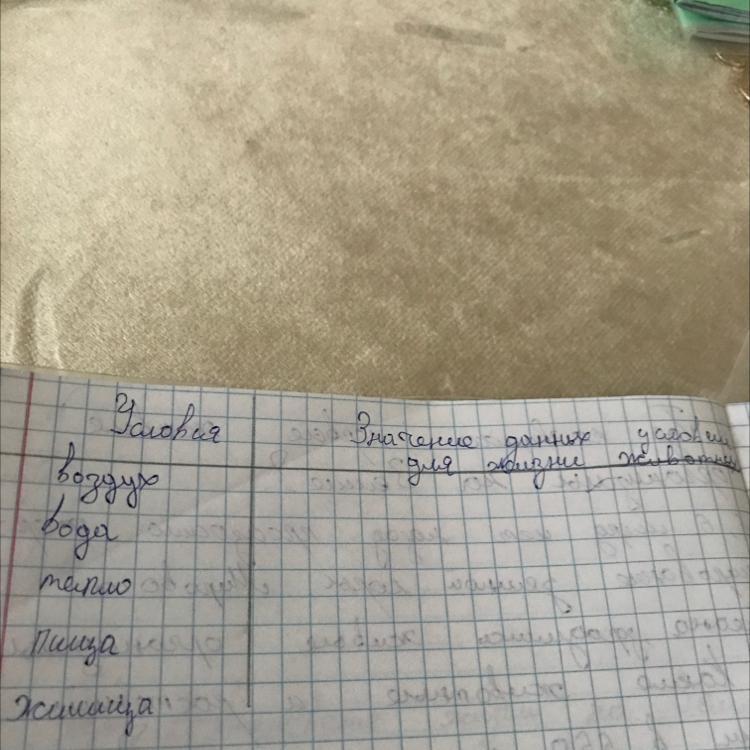 Условия
Значение данных условий
для жизни животных
воздух
вода
тепло
Пища
Жилища